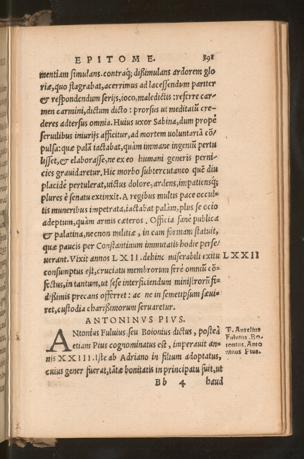 EPITOME. 891
mentiam simulans. contraq; dissimulans ardorem glo
riæ, quo flagrabat, acerrimus ad lacessendum pariter
& respondendum serijs, ioco, maledictis: referre car-
men carmini, dictum dicto: prorsus ut meditatū cre-
deres aduersus omnia. Huius uxor Sabina, dum propè
seruilibus iniurijs afficitur, ad mortem uoluntariā cō
pulsa: quæ palā iactabat, quàm immane ingeniū pertu
lisset, & elaborasse, ne ex eo humani generis perni-
cies grauidaretur. Hic morbo subtercutaneo quē diu
placidè pertulerat, uictus dolore, ardens, impatiensq;
plures è senatu extinxit. A regibus multis pace occul-
tis muneribus impetrata, iactabat palàm, plus se ocio
adeptum, quàm armis cæteros. Officia sanè publica
& palatina, necnon militiæ, in eam formam statuit,
quæ paucis per Constantinum immutatis hodie perse/
uerant. Vixit annos LXII. dehinc miserabili exitu
LXXII
consumptus est, cruciatu membrorum ferè omniū cō-
fectus, in tantum, ut sese interficiendum ministrorū fi-
dissimis precans offerret: ac ne in semetipsum sæui-
ret, custodia charissimorum seruaretur.
ANTONINVS PIVS.
ANtonius Fuluius seu Boionius dictus, posteà
etiam Pius cognominatus est, imperauit an-
nis XXIII. Iste ab Adriano in filium adoptatus,
cuius gener fuerat, tātæ bonitatis in principatu fuit, ut
T. Aurelius
Fuluius, Bo-
ionius, Anto
ninus Pius.
Bb 4 haud